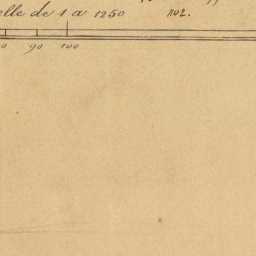 elle de 1 a 1250 702.
0 90 100